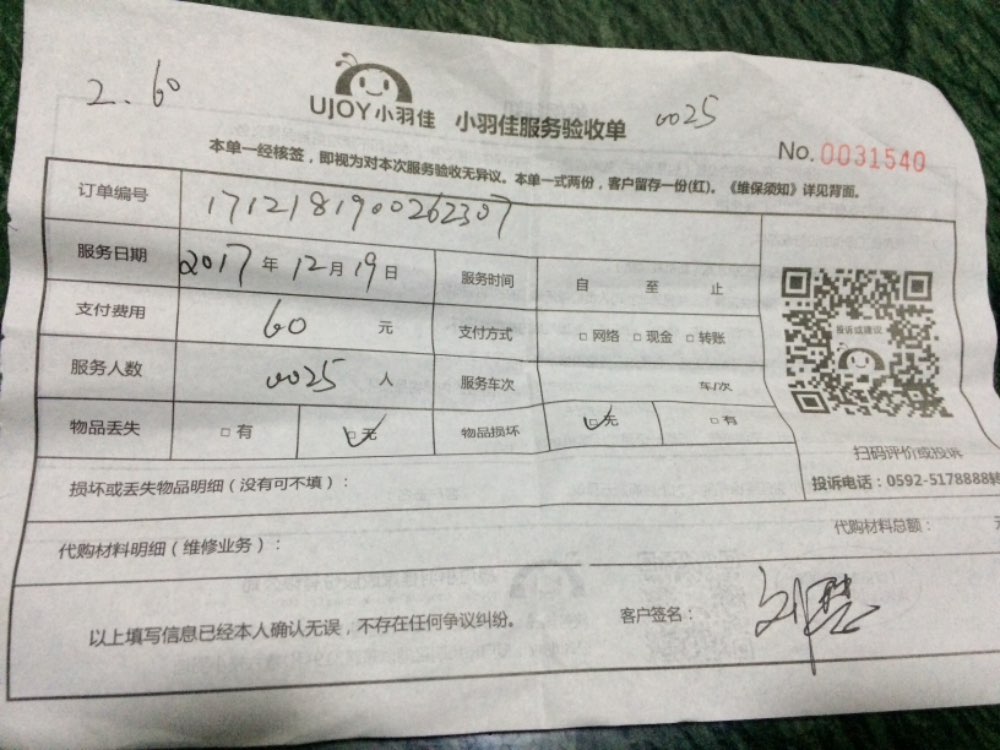 2.60
UJOY小羽佳 小羽佳服务验收单 0025
No.0031540
本单一经核签，即视为对本次服务验收无异议。本单一式两份，客户留存一份(红)。《维保须知》详见背面。
订单编号 1712181900262307
服务日期 2017年12月19日 服务时间 自 至 止
支付费用 60 元 支付方式 □网络 □现金 □转账
服务人数 0025 人 服务车次 车/次
物品丢失 □有 ☑无 物品损坏 ☑无 □有
投诉或建议
扫码评价或投诉
投诉电话：0592-5178888转
损坏或丢失物品明细（没有可不填）：
代购材料明细（维修业务）： 代购材料总额：
以上填写信息已经本人确认无误，不存在任何争议纠纷。 客户签名：